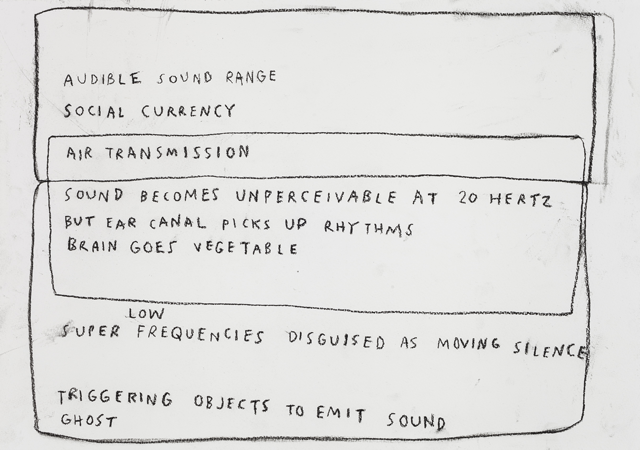 AUDIBLE SOUND RANGE
SOCIAL CURRENCY
AIR TRANSMISSION
SOUND BECOMES UNPERCEIVABLE AT 20 HERTZ
BUT EAR CANAL PICKS UP RHYTHMS
BRAIN GOES VEGETABLE
LOW
SUPER FREQUENCIES DISGUISED AS MOVING SILENCE
TRIGGERING OBJECTS TO EMIT SOUND
GHOST